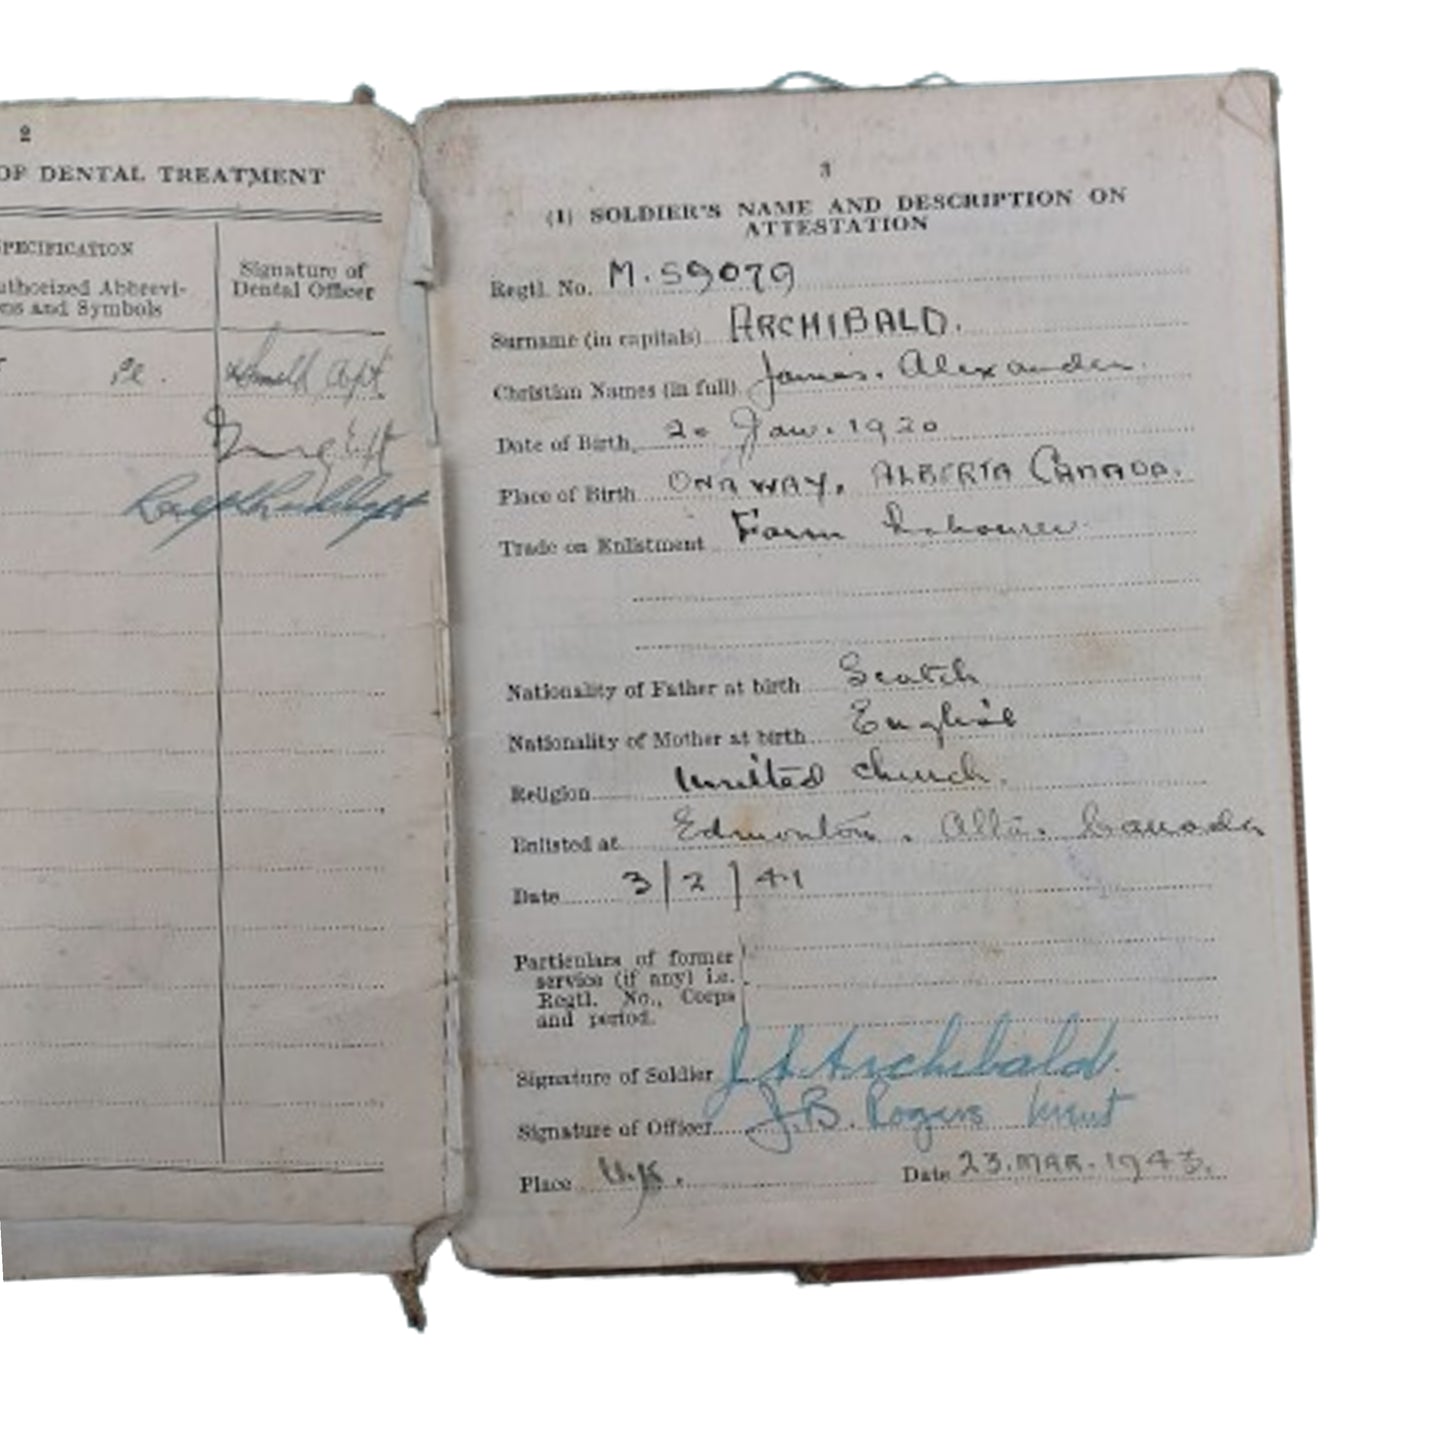 2
OF DENTAL TREATMENT
PECIFICATION
uthorized Abbrevi-
ns and Symbols
Signature of
Dental Officer
3
(1) SOLDIER'S NAME AND DESCRIPTION ON
ATTESTATION
Regtl. No. M. 59079
Surname (in capitals) ARCHIBALD.
Christian Names (in full) James. Alexander.
Date of Birth 20 Jan. 1920
Place of Birth ONAWAY, ALBERTA CANADA.
Trade on Enlistment Farm Labourer
Nationality of Father at birth Scotch
Nationality of Mother at birth English
Religion United church.
Enlisted at Edmonton. Alta. Canada
Date 3/2/41
Particulars of former
service (if any) i.e.
Regtl. No., Corps
and period.
Signature of Soldier J A Archibald.
Signature of Officer J.B. Rogers Lieut
Place U.K. Date 23. MAR. 1943.